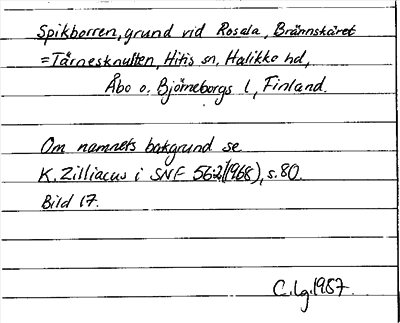 Spikborren, grund vid Rosala, Brännskäret
=Tärnesknulten, Hitis sn, Halikko hd,
Åbo o. Björneborgs l, Finland.
Om namnets bakgrund se
K. Zilliacus i SNF 56:2 (1968), s. 80.
Bild 17.
C. lg. 1987.